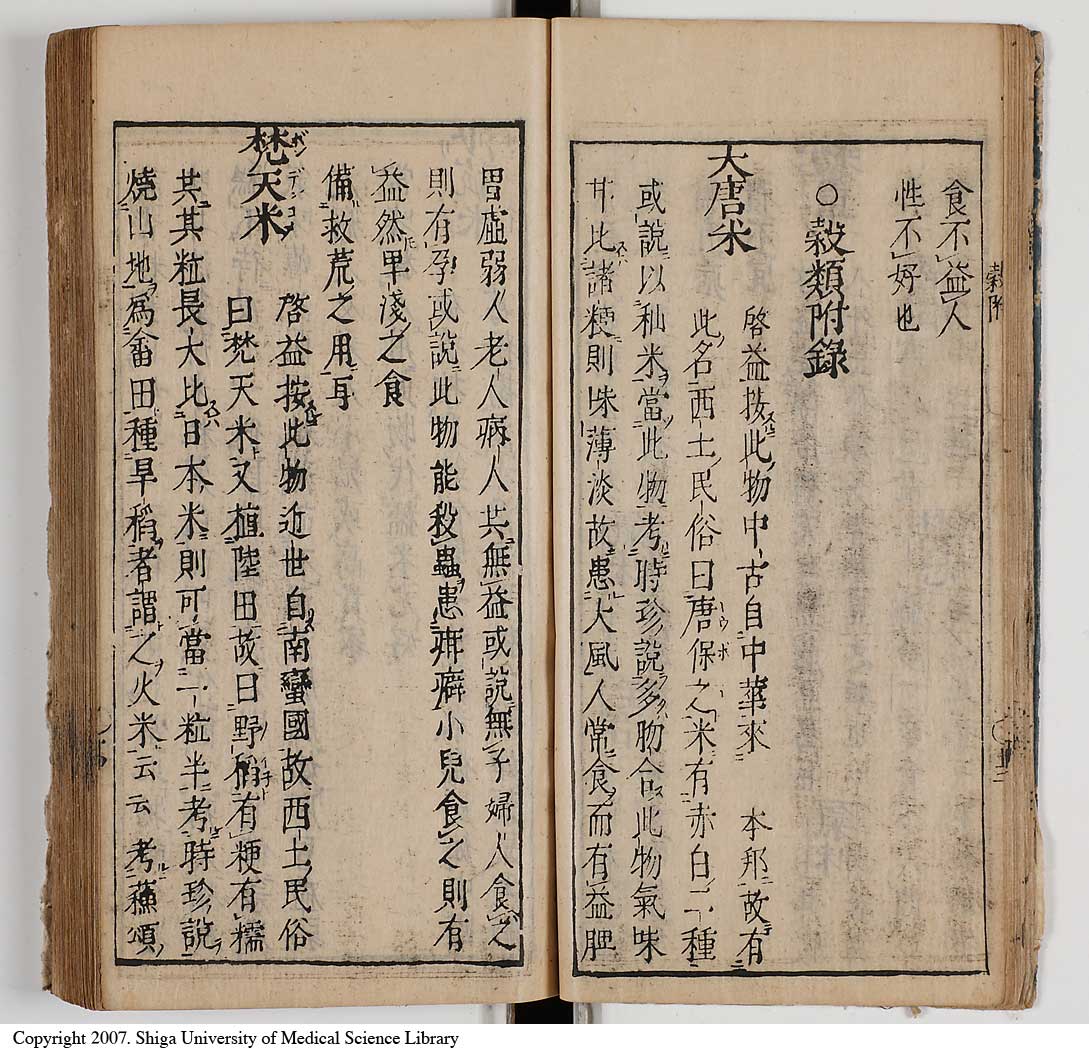 食不益人
性不好也
○穀類附錄
大唐米
啓益按此物中古自中華來 本邦故有
此名西土民俗曰唐保之米有赤白二種
或說以秈米當此物考時珍說多吻合此物氣味
甘比諸粳則味薄淡故患大風人常食而有益脾
穀附
胃虛弱人老人病人共無益或說無子婦人食之
則有孕或說此物能殺蟲患疳癖小兒食之則有
益然卑淺之食
備救荒之用耳
梵天米
ボンデンコメ
啓益按此物近世自南蠻國故西土民俗
曰梵天米又植陸田故曰野稻有粳有糯
共其粒長大比日本米則可當一粒半考時珍說
燒山地爲畬田種旱稻者謂之火米云云考蘇頌
Copyright 2007. Shiga University of Medical Science Library